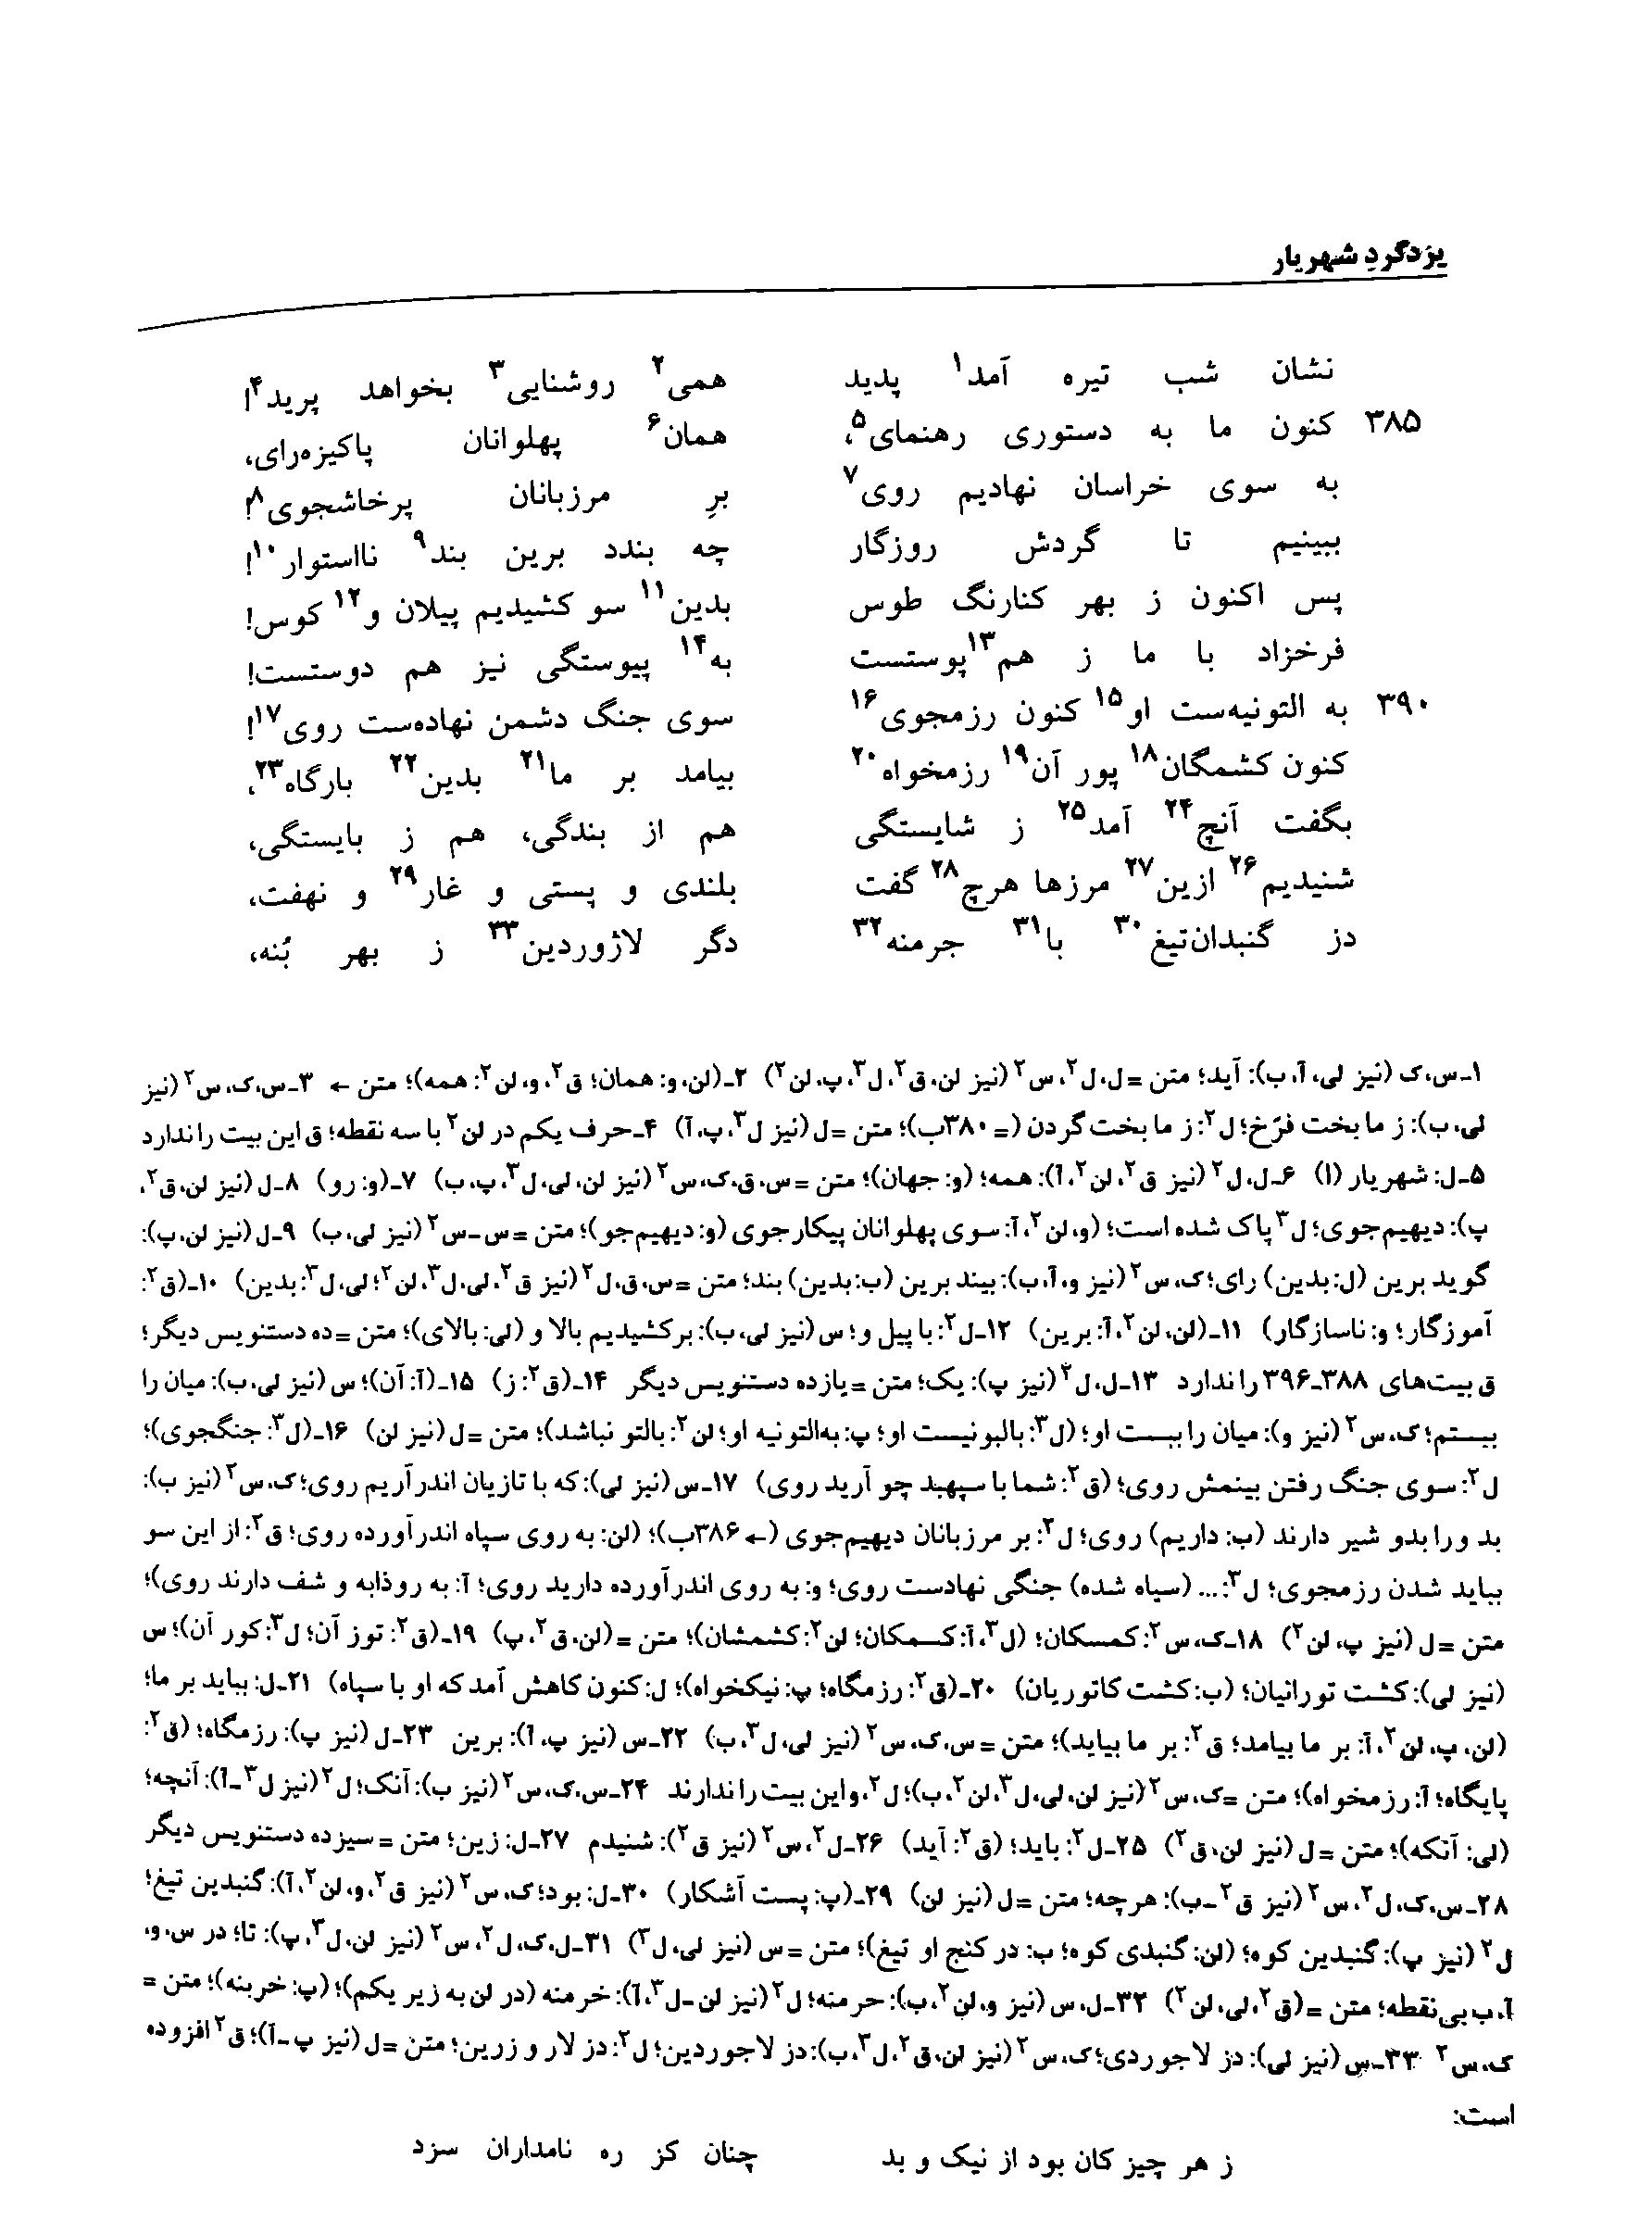 یزدگردِ شهریار
نشان شب تیره آمد۱ پدید همی۲ روشنایی۳ بخواهد پرید۴!
۳۸۵ کنون ما به دستوری رهنمای۵، همان۶ پهلوانان پاکیزه‌رای،
به سوی خراسان نهادیم روی۷ برِ مرزبانان پرخاشجوی۸!
ببینیم تا گردش روزگار چه بندد برین بند۹ نااستوار۱۰!
پس اکنون ز بهر کنارنگ طوس بدین۱۱ سو کشیدیم پیلان و۱۲ کوس!
فرخزاد با ما ز هم۱۳پوستست به۱۴ پیوستگی نیز هم دوستست!
۳۹۰ به التونیه‌ست او۱۵ کنون رزمجوی۱۶ سوی جنگ دشمن نهاده‌ست روی۱۷!
کنون کشمگان۱۸ پور آن۱۹ رزمخواه۲۰ بیامد بر ما۲۱ بدین۲۲ بارگاه۲۳،
بگفت آنچ۲۴ آمد۲۵ ز شایستگی هم از بندگی، هم ز بایستگی،
شنیدیم۲۶ ازین۲۷ مرزها هرچ۲۸ گفت بلندی و پستی و غار۲۹ و نهفت،
دز گنبدان‌تیغ۳۰ با۳۱ جرمنه۳۲ دگر لاژوردین۳۳ ز بهر بُنه،
۱ـس،ک (نیز لی،آ،ب): آید؛ متن =ل،ل۲،س۲ (نیز لن،ق۲،ل۳،پ،لن۲) ۲ـ(لن،و: همان؛ ق۲،و،لن۲: همه)؛ متن ← ۳ـس،ک،س۲ (نیز
لی،ب): ز ما بخت فرّخ؛ ل۲: ز ما بخت گردن (= ۳۸۰ب)؛ متن =ل (نیز ل۳،پ،آ) ۴ـحرف یکم در لن۲ با سه نقطه؛ ق این بیت را ندارد
۵ـل: شهریار (ا) ۶ـل،ل۲ (نیز ق۲،لن۲،آ): همه؛ (و: جهان)؛ متن =س،ق،ک،س۲ (نیز لن،لی،ل۳،پ،ب) ۷ـ(و: رو) ۸ـل (نیز لن،ق۲،
پ): دیهیم‌جوی؛ ل۳ پاک شده است؛ (و،لن۲،آ: سوی پهلوانان پیکارجوی (و: دیهیم‌جو)؛ متن =س-س۲ (نیز لی،ب) ۹ـل (نیز لن،پ):
گوید برین (ل: بدین) رای؛ ک،س۲ (نیز و،آ،ب): بیند برین (ب: بدین) بند؛ متن =س،ق،ل۲ (نیز ق۲،لی،ل۳،لن۲؛ لی،ل۳: بدین) ۱۰ـ(ق۲:
آموزگار؛ و: ناسازگار) ۱۱ـ(لن،لن۲،آ: برین) ۱۲ـل۲: با پیل و؛ س (نیز لی،ب): برکشیدیم بالا و (لی: بالای)؛ متن =ده دستنویس دیگر؛
ق بیت‌های ۳۸۸ـ۳۹۶ را ندارد ۱۳ـل،ل۲ (نیز پ): یک؛ متن =یازده دستنویس دیگر ۱۴ـ(ق۲: ز) ۱۵ـ(آ: آن)؛ س (نیز لی،ب): میان را
ببستم؛ ک،س۲ (نیز و): میان را ببست او؛ (ل۳: بالبونیست او؛ پ: به‌التونیه او؛ لن۲: بالتو نباشد)؛ متن =ل (نیز لن) ۱۶ـ(ل۳: جنگجوی)؛
ل۲: سوی جنگ رفتن بینمش روی؛ (ق۲: شما با سپهبد چو آرید روی) ۱۷ـس (نیز لی): که با تازیان اندر آریم روی؛ ک،س۲ (نیز ب):
بد ورا بدو شیر دارند (ب: داریم) روی؛ ل۲: بر مرزبانان دیهیم‌جوی (← ۳۸۶ب)؛ (لن: به روی سپاه اندر آورده روی؛ ق۲: از این سو
بباید شدن رزمجوی؛ ل۳:... (سیاه شده) جنگی نهادست روی؛ و: به روی اندر آورده دارید روی؛ آ: به روذابه و شف دارند روی)؛
متن =ل (نیز پ،لن۲) ۱۸ـک،س۲: کمسکان؛ (ل۳،آ: کسمکان؛ لن۲: کشمشان)؛ متن =(لن،ق۲،پ) ۱۹ـ(ق۲: توز آن؛ ل۳: کور آن)؛ س
(نیز لی): کشت تورانیان؛ (ب: کشت کاتوریان) ۲۰ـ(ق۲: رزمگاه؛ پ: نیکخواه)؛ ل: کنون کاهش آمد که او با سپاه) ۲۱ـل: بیاید بر ما؛
(لن،پ،لن۲،آ: بر ما بیامد؛ ق۲: بر ما بیاید)؛ متن =س،ک،س۲ (نیز لی،ل۳،ب) ۲۲ـس (نیز پ،آ): برین ۲۳ـل (نیز پ): رزمگاه؛ (ق۲:
پایگاه؛ آ: رزمخواه)؛ متن =ک،س۲ (نیز لن،لی،ل۳،لن۲،ب)؛ ل۲،و این بیت را ندارند ۲۴ـس،ک،س۲ (نیز ب): آنک؛ ل۲ (نیز ل۳-آ): آنچه؛
(لی: آنکه)؛ متن =ل (نیز لن،ق۲) ۲۵ـل۲: باید؛ (ق۲: آید) ۲۶ـل۲،س۲ (نیز ق۲): شنیدم ۲۷ـل: زین؛ متن =سیزده دستنویس دیگر
۲۸ـس،ک،ل۲،س۲ (نیز ق۲-ب): هرچه؛ متن =ل (نیز لن) ۲۹ـ(پ: پست آشکار) ۳۰ـل: بود؛ ک،س۲ (نیز ق۲،و،لن۲،آ): گنبدین تیغ؛
ل۲ (نیز پ): گنبدین کوه؛ (لن: گنبدی کوه؛ ب: در کنج او تیغ)؛ متن =س (نیز لی،ل۳) ۳۱ـل،ک،ل۲،س۲ (نیز لن،ل۳،پ): تا؛ در س،و،
آ،ب بی‌نقطه؛ متن =(ق۲،لی،لن۲) ۳۲ـل،س (نیز و،لن۲،ب): حرمنه؛ ل۲ (نیز لن-ل۳،آ): خرمنه (در لن به زیر یکم)؛ (پ: خربنه)؛ متن =
ک،س۲ ۳۳ـس (نیز لی): دز لاجوردی؛ ک،س۲ (نیز لن،ق۲،ل۳،ب): دز لاجوردین؛ ل۲: دز لار و زرین؛ متن =ل (نیز پ-آ)؛ ق۲ افزوده
است:
ز هر چیز کان بود از نیک و بد چنان کز ره نامداران سزد